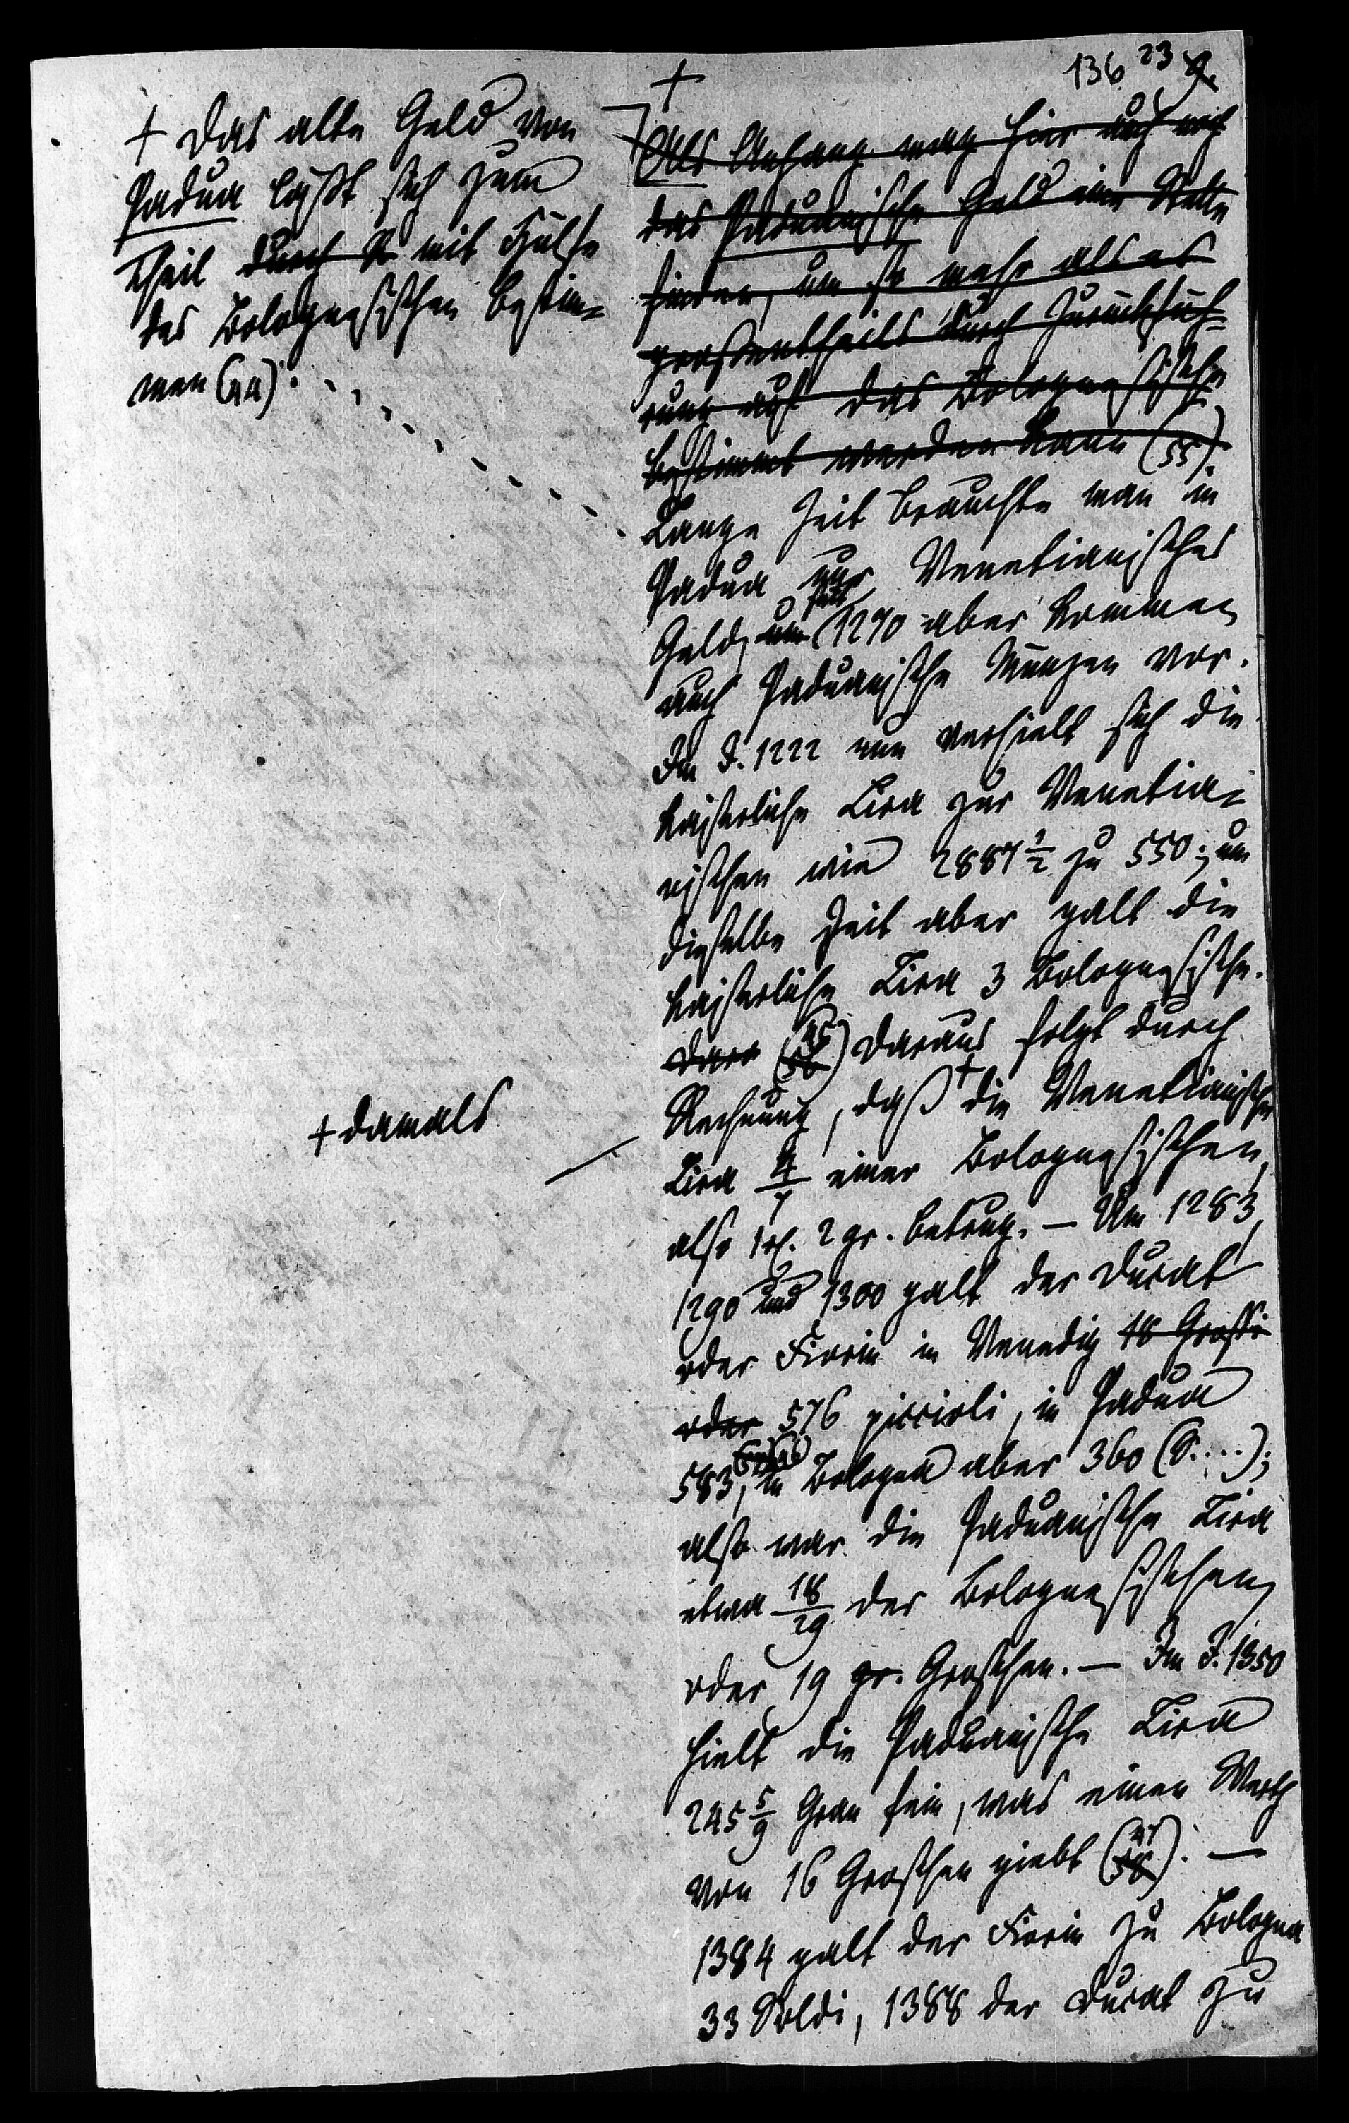 136 23 9.
+ Das alte Geld von
Padua läßt sich zum
Theil durch R mit Hülfe
des Bolognesischen bestim=
men (44)
+ damals
+
Als Anhang mag hier auch noch
das Paduanische Geld eine Stelle
finden, um so mehr als es
großentheils durch Zurückfüh=
rung auf das Bolognesische
bestimmt werden kann (55).
Lange Zeit brauchte man in
Padua nur Venetianisches
Geld, um seit 1270 aber kommen
auch Paduanische Münzen vor.
Im J. 1222 nun verhielt sich die
kaiserliche Lira zur Venetia=
nischen wie 2887 1/2 zu 550; um
dieselbe Zeit aber galt die
kaiserliche Lira 3 Bolognesische.
Dara (56) (45) Daraus folgt durch
Rechnung, daß + die Venetianische
Lira 4/7 einer Bolognesischen,
also 1 rt. 2 gr. betrug. — Um 1283,
1290 und 1300 galt der Ducat
oder Fiorin in Venedig 18 Grossi
oder 576 piccioli, in Padua
583 (57) (46), in Bologna aber 360 (S....);
also war die Paduanische Lira
etwa 18/29 der Bolognesischen,
oder 19 gr. Groschen. — Im J. 1350
hielt die Paduanische Lira
245 5/9 Gran fein, was einen Werth
von 16 Groschen giebt (58) (47). —
1384 galt der Fiorin zu Bologna
33 Soldi, 1388 der Ducat zu